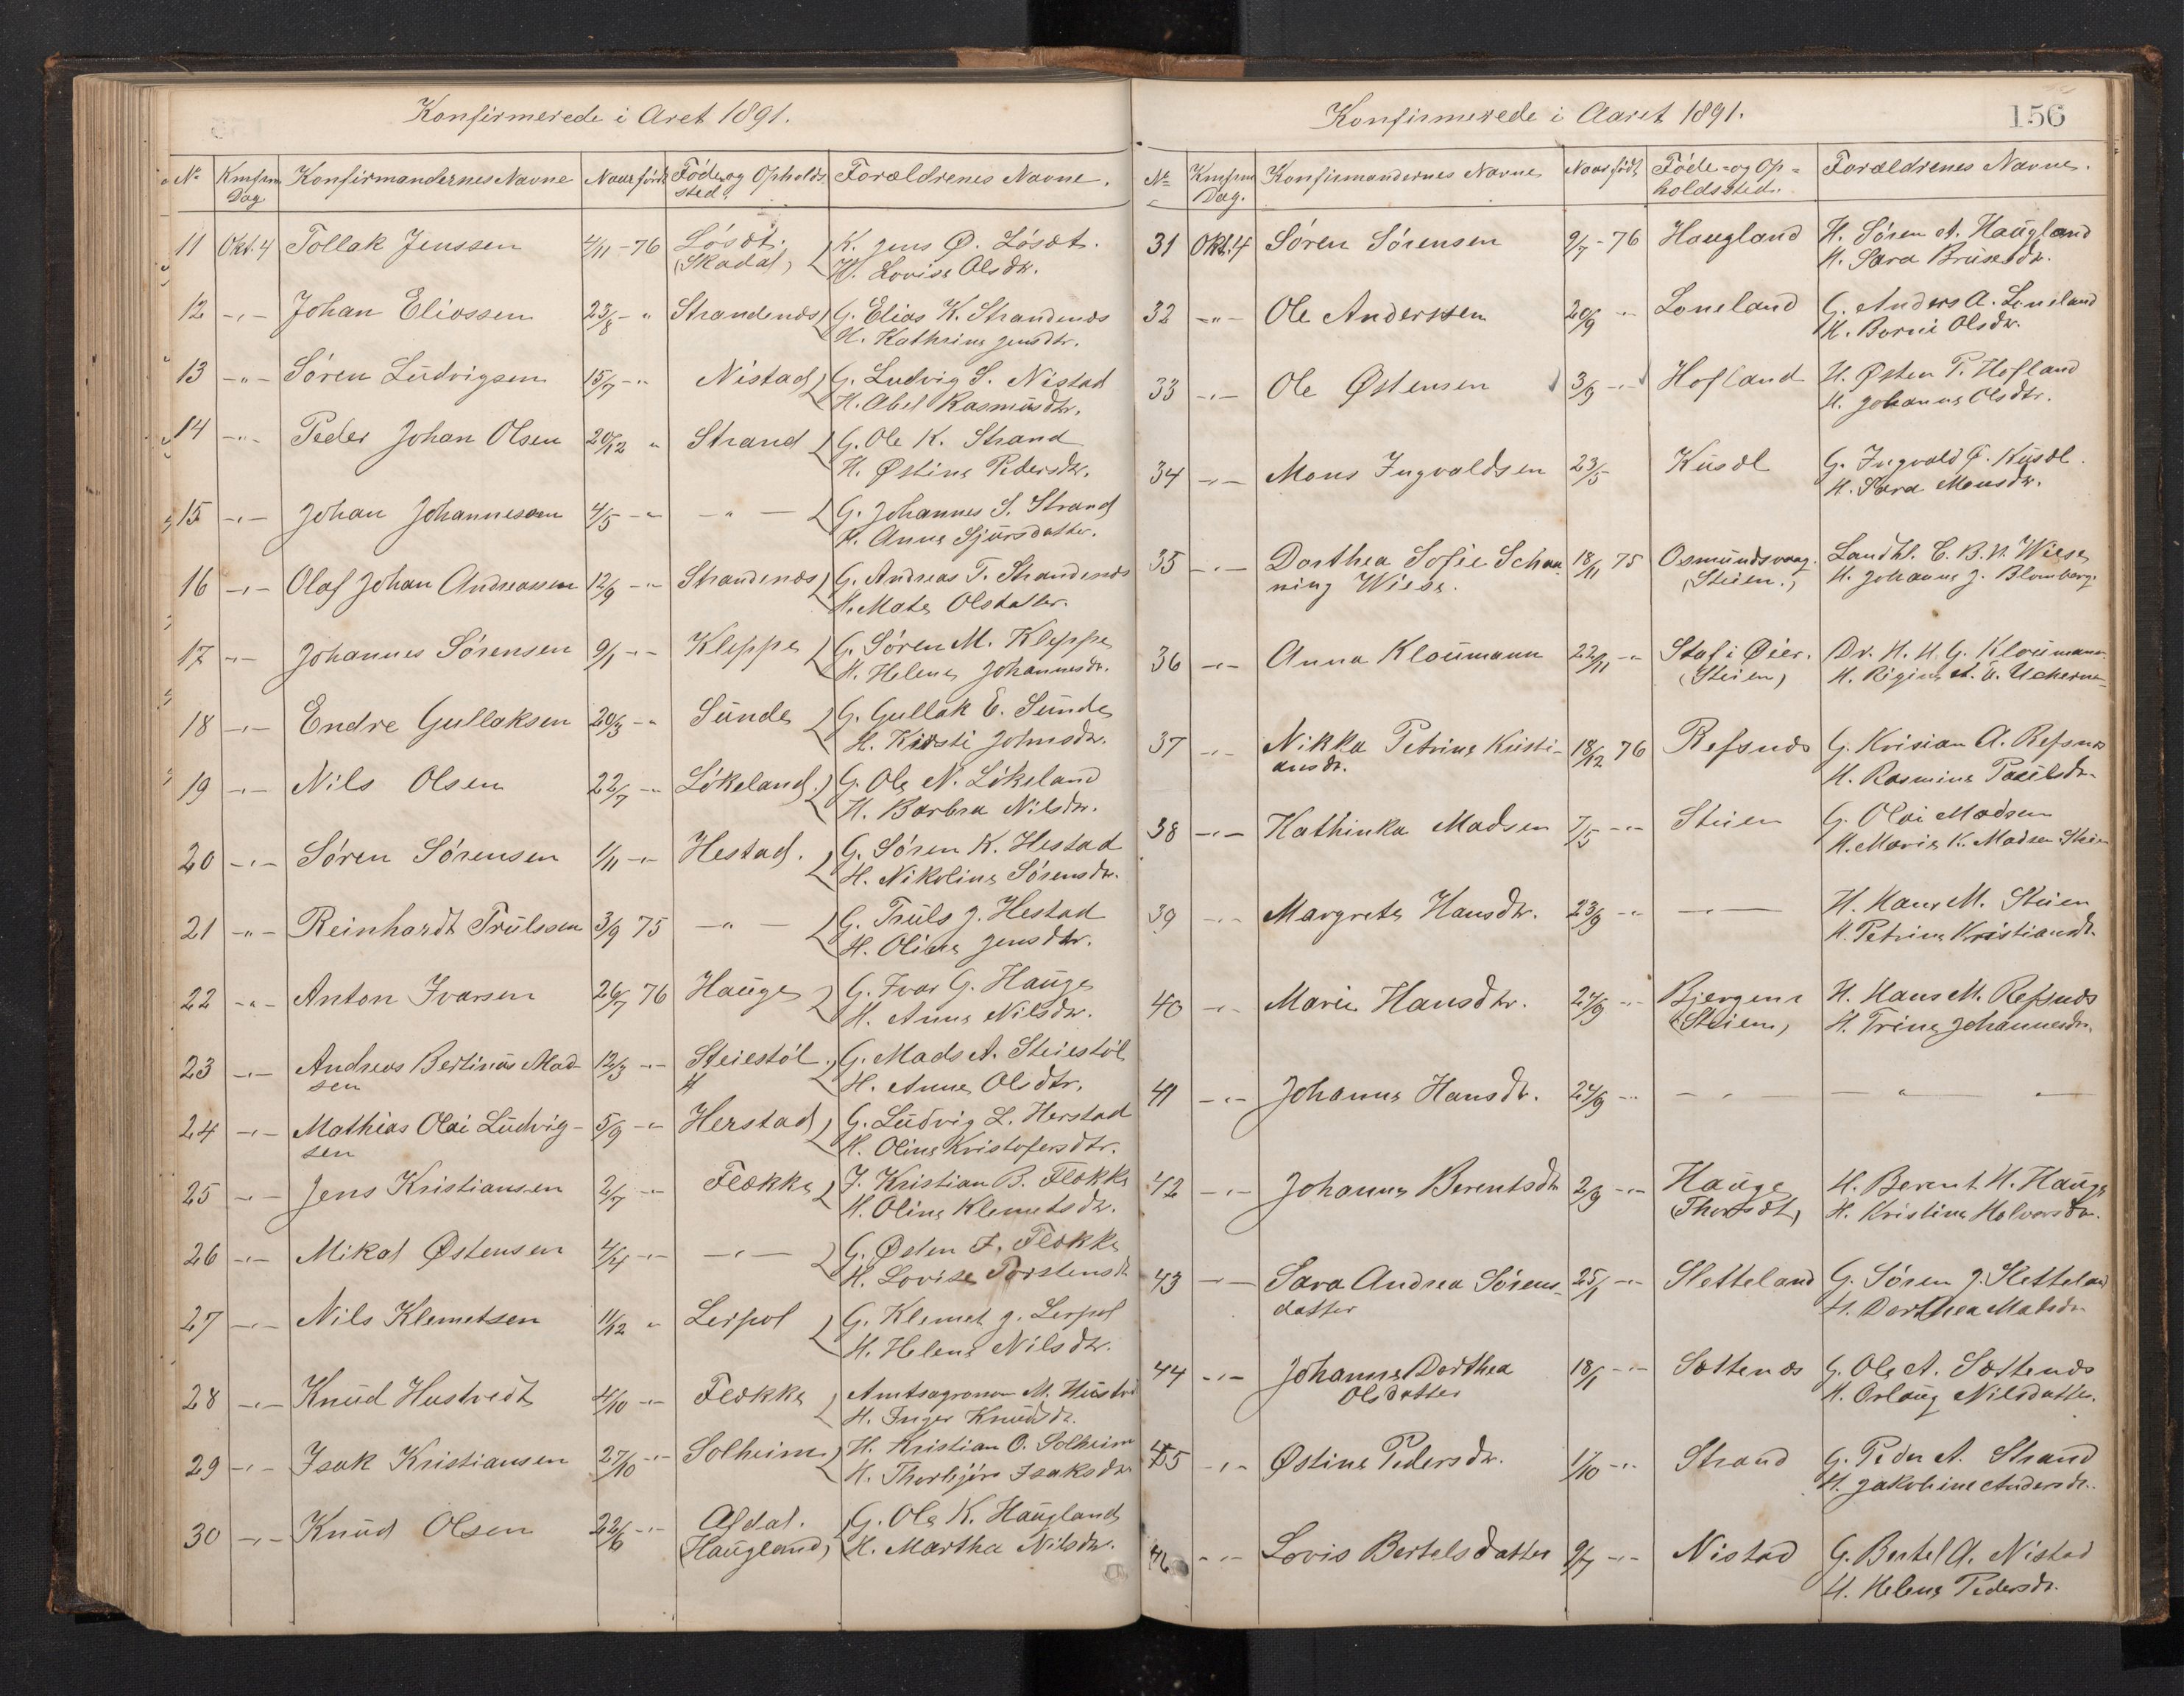 Konfirmerede i Aret 1891.
No Knfrm Dag Konfirmandernes Navne Naar født Føde og Opholds sted Forældrenes Navne.
11 Okt. 4 Tollak Jenssen 4/11 - 76 Løsæt. K. Jens Ø. Løsæt.
(Skadal) H. Lovise Olsdtr.
12 -"- Johan Eliassen 23/8 - " Strandenæs G. Elias K. Strandenæs
H. Kathrine Jensdtr.
13 -"- Søren Ludvigsen 15/7 - " Nistad G. Ludvig S. Nistad
H. Abel Rasmusdtr.
14 -"- Peder Johan Olsen 20/12 " Strand G. Ole K. Strand
H. Østine Pedersdtr.
15 -"- Johan Johannesen 4/5 - " - " - G. Johannes S. Strand
H. Anna Sjursdatter.
16 -"- Olaf Johan Andreassen 12/9 - " Strandenæs G. Andreas T. Strandenæs
H. Mate Olsdatter.
17 -"- Johannes Sørensen 9/1 - " Kleppe G. Søren M. Kleppe
H. Helene Johannesdr.
18 -"- Endre Gullaksen 20/3 - " Sunde G. Gullak E. Sunde
H. Kirsti Johnsdtr.
19 -"- Nils Olsen 22/7 - " Løkeland G. Ole N. Løkeland
H. Barbra Nilsdtr.
20 -"- Søren Sørensen 1/11 - " Hestad. G. Søren K. Hestad
H. Nikoline Sørensdtr.
21 -"- Reinhardt Trulssen 3/9 75 - " - G. Truls J. Hestad
H. Oline Jensdtr.
22 -"- Anton Ivarsen 26/7 76 Hauge G. Ivar G. Hauge
H. Anna Nilsdtr.
23 -"- Andreas Bertinus Mad- 12/3 - " Steiestøl G. Mads A. Steiestøl
sen H. Anne Olsdtr.
24 -"- Mathias Olai Ludvig- 5/9 - " Herstad G. Ludvig L. Herstad
sen H. Oline Kristofersdtr.
25 -"- Jens Kristiansen 2/7 - " Flekke J. Kristian B. Flekke
H. Oline Klemetsdtr.
26 -"- Mikal Østensen 4/4 - " - " - G. Østen J. Flekke
H. Lovise Torstensdr
27 -"- Nils Klemetsen 11/12 " Leirpol G. Klemet J. Leirpol
H. Helene Nilsdtr.
28 -"- Knud Hustvedt 4/10 - " Flekke Amtsagronom M. Hustve
H. Inger Knudsdr.
29 -"- Isak Kristiansen 27/10 - " Solheim H. Kristian O. Solheim
H. Thorbjør Isaksdtr
30 -"- Knud Olsen 22/6 - " Afdal. G. Ole K. Haugland
(Haugland) H. Martha Nilsdtr.
Konfirmerede i Aaret 1891.
156
No Knfrm Dag. Konfirmandernes Navne Naar født Føde- og Op- holdssted. Forældrenes Navne.
31 Okt. 4 Søren Sørensen 9/7 - 76 Haugland H. Søren A. Haugland
H. Sara
32 -"- Ole Anderssen 20/9 - " Loneland G. Anders A. Loneland
H. Olsdtr.
33 -"- Ole Østensen 3/9 - " Hofland H. Østen P. Hofland
H. Johanne Olsdtr.
34 -"- Mons Ingvaldsen 23/5 G. Ingvald
H. Sara Monsdtr.
35 -"- Dorthea Sofie Schan- 18/11 75 Osmundsvaag. Landhl. C. B. N. Wiese
ning Wiese. (Steien.) H. Johanne J. Blomberg.
36 -"- Anna Kloumann 22/11 - " Staf i Øier. Dr. H. H. G. Kloumann.
(Steien) H.
37 -"- Nikka Petrine Kristi- 18/12 76 Refsnæs G. Krisian A. Refsnæs
ansdr. H. Rasmine Paulsdr.
38 -"- Kathinka Madsen 7/5 - " Steien G. Olai Madsen
H. Marie K. Madsen Steien
39 -"- Margrete Hansdtr. 23/9 - " - " - H. Hans M. Steien
H. Petrine Kristiansdr.
40 -"- Marie Hansdtr. 24/9 - " Bjergene H. Hans M. Refsnæs
(Steien) H. Trine Johannesdr.
41 -"- Johanne Hansdtr. 24/9 - " - " - - " -
42 -"- Johanne Berentsdtr 2/9 - " Hauge H. Berent H. Hauge
H. Kristine Halvorsdtr.
43 -"- Sara Andrea Sørens- 25/1 - " Sletteland G. Søren J. Sletteland
datter H. Dorthea Matsdr
44 -"- Johanne Dorthea 18/1 - " Sættenæs G. Ole A. Sættenæs
Olsdatter H. Orlaug Nilsdatter.
45 -"- Østine Pedersdtr. 1/10 - " Strand G. Peder A. Strand
H. Jakobine Andersdr.
46 -"- Lovis Bertelsdatter 9/7 - " Nistad G. Bertel A. Nistad
H. Helene Pedersdr.